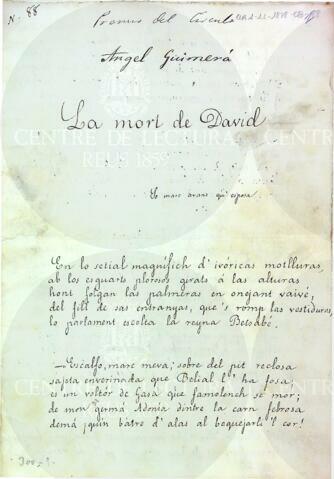 N. 88
Premis del Círcul
Angel Guimerá
La mort de David
CENTRE DE LECTURA
REUS 1859
En lo setial magnífich d' ivóricas motlluras,
ab los esguarts plorosos girats á las alturas
hont folgan las palmeras en onejant vaivé,
del fill de sas entranyas, que's romp las vestiduras,
lo parlament escolta la reyna Betsabé.
—Escolta, mare meva; sobre del pit reclosa
sajeta enverinada que Belial l' ha fosa,
es un voltor de Gasa que famolench se mor;
de mon germá Adonia dintre la carn febrosa
demá ¡quin batre d' alas al bequejarli 'l cor!